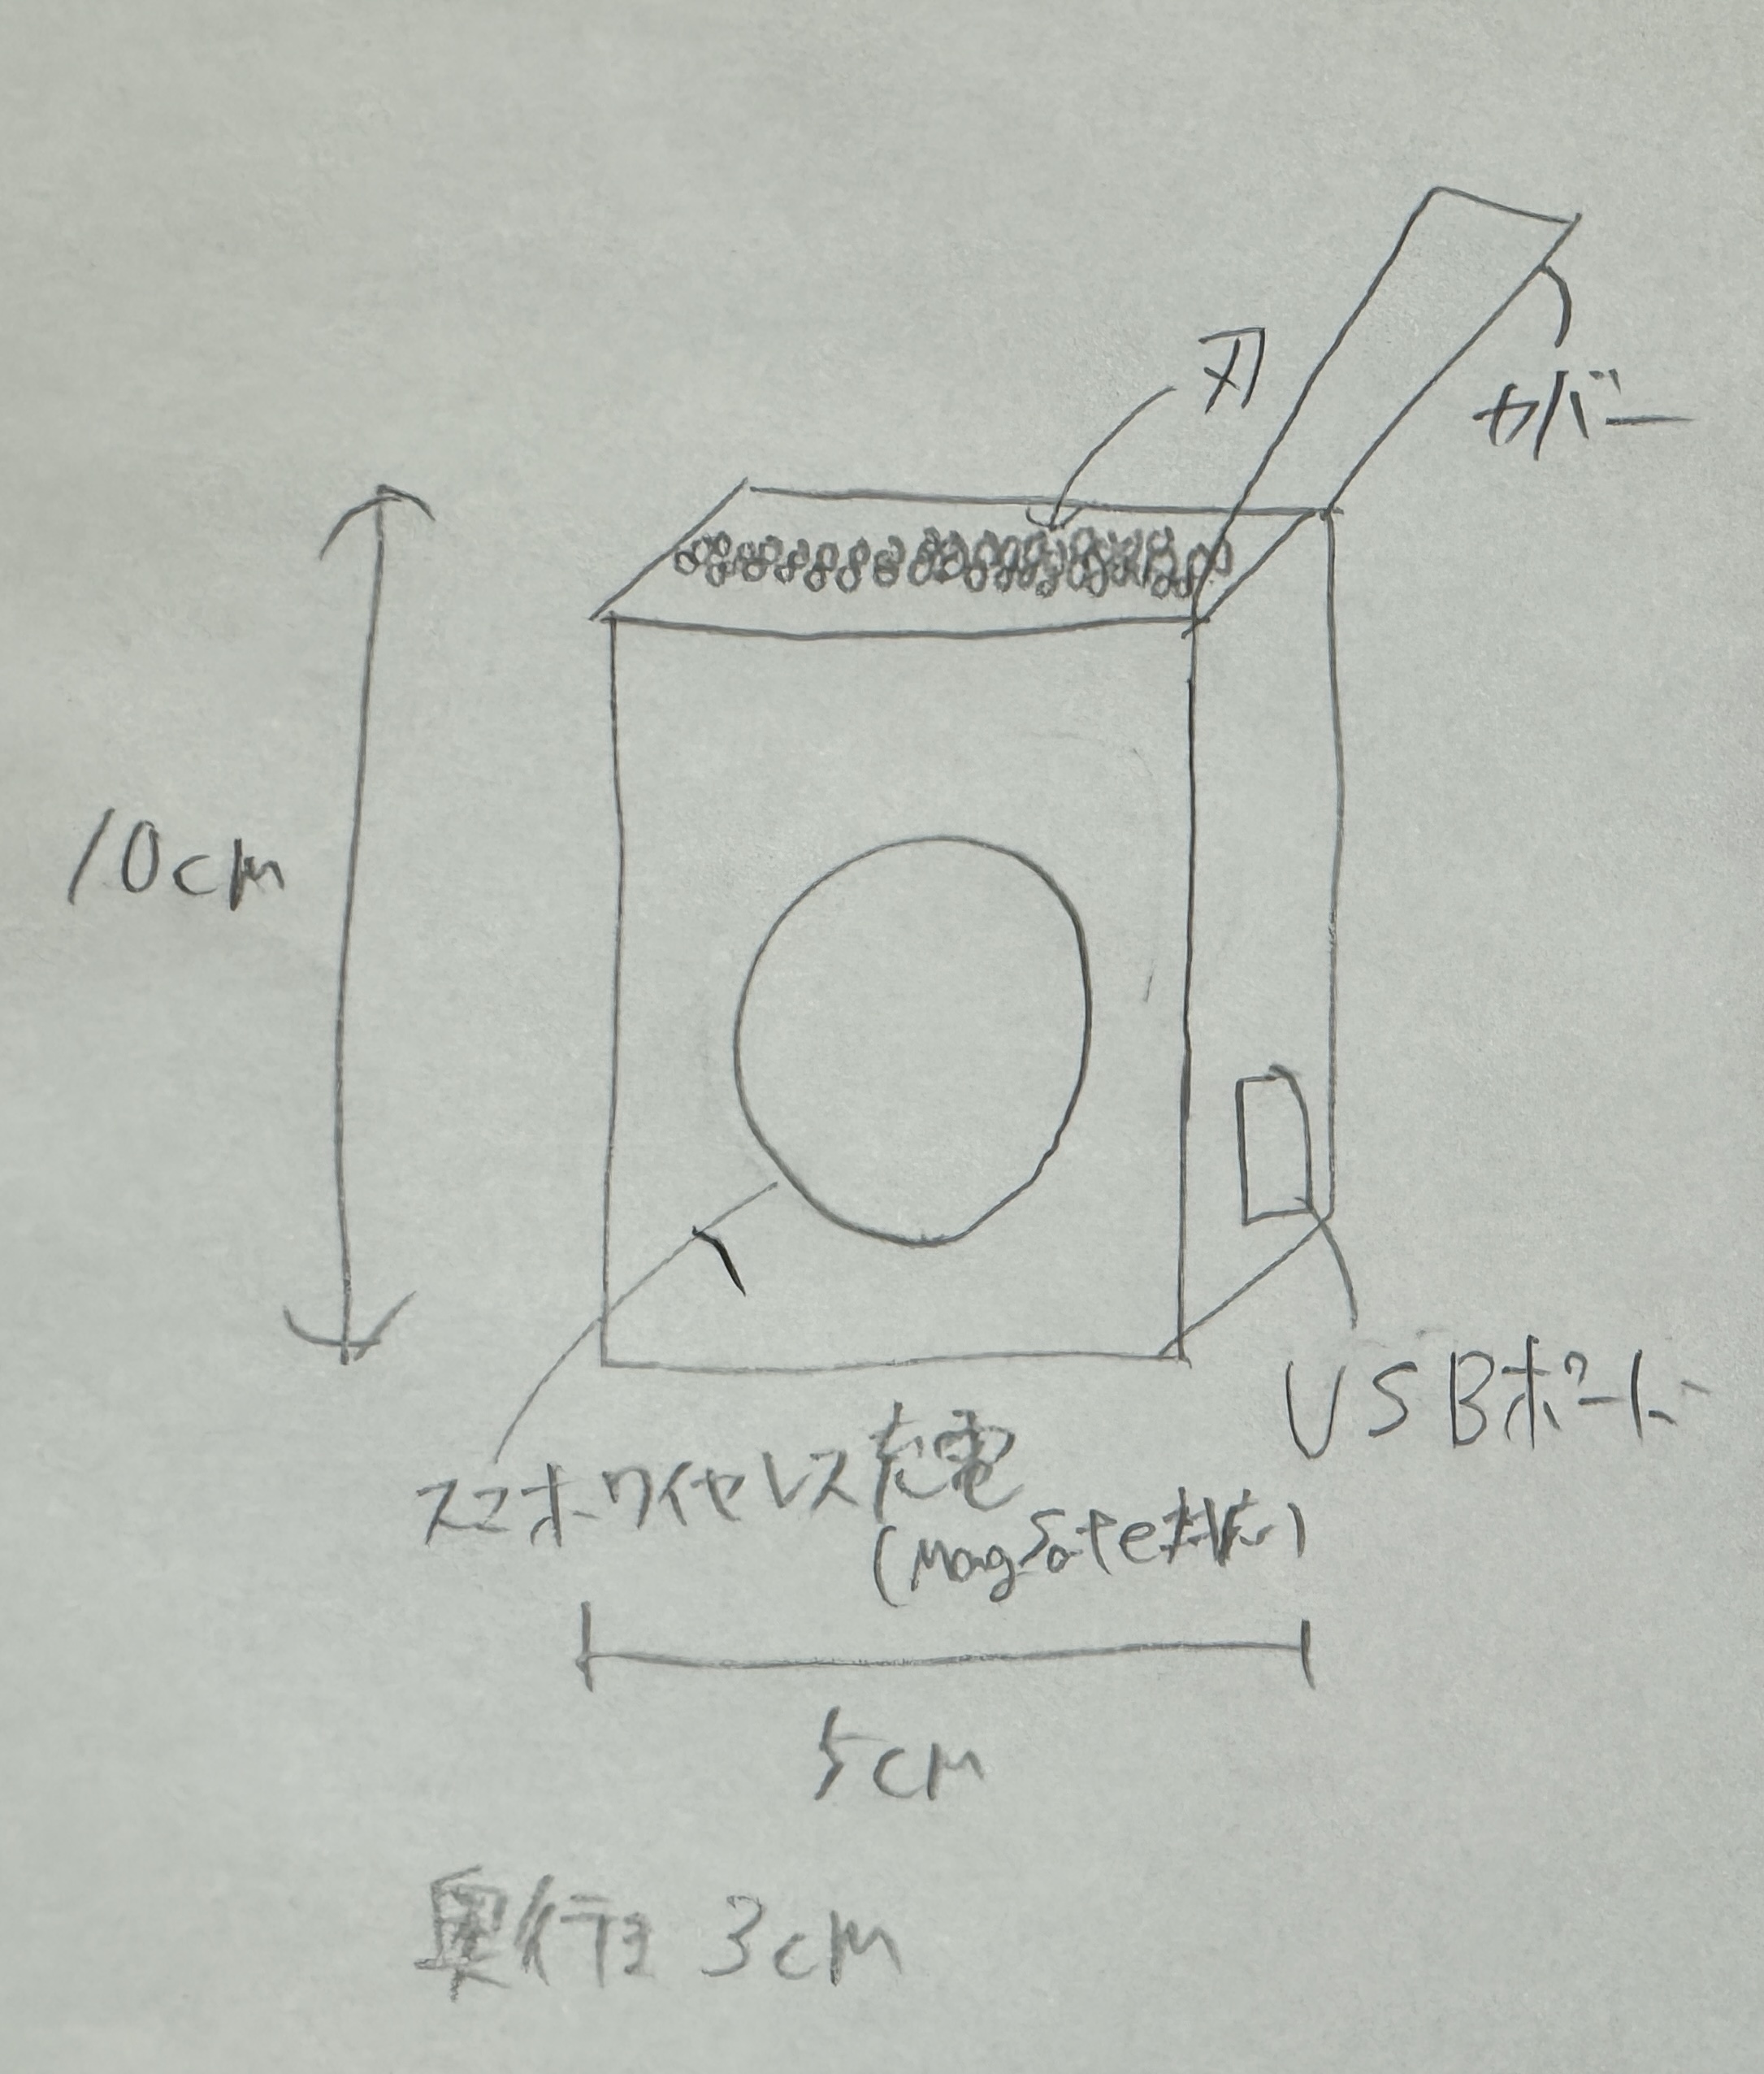 刃
カバー
10cm
USBポート
スマホワイヤレス充電
(MagSafe対応)
5cm
奥行き 3cm